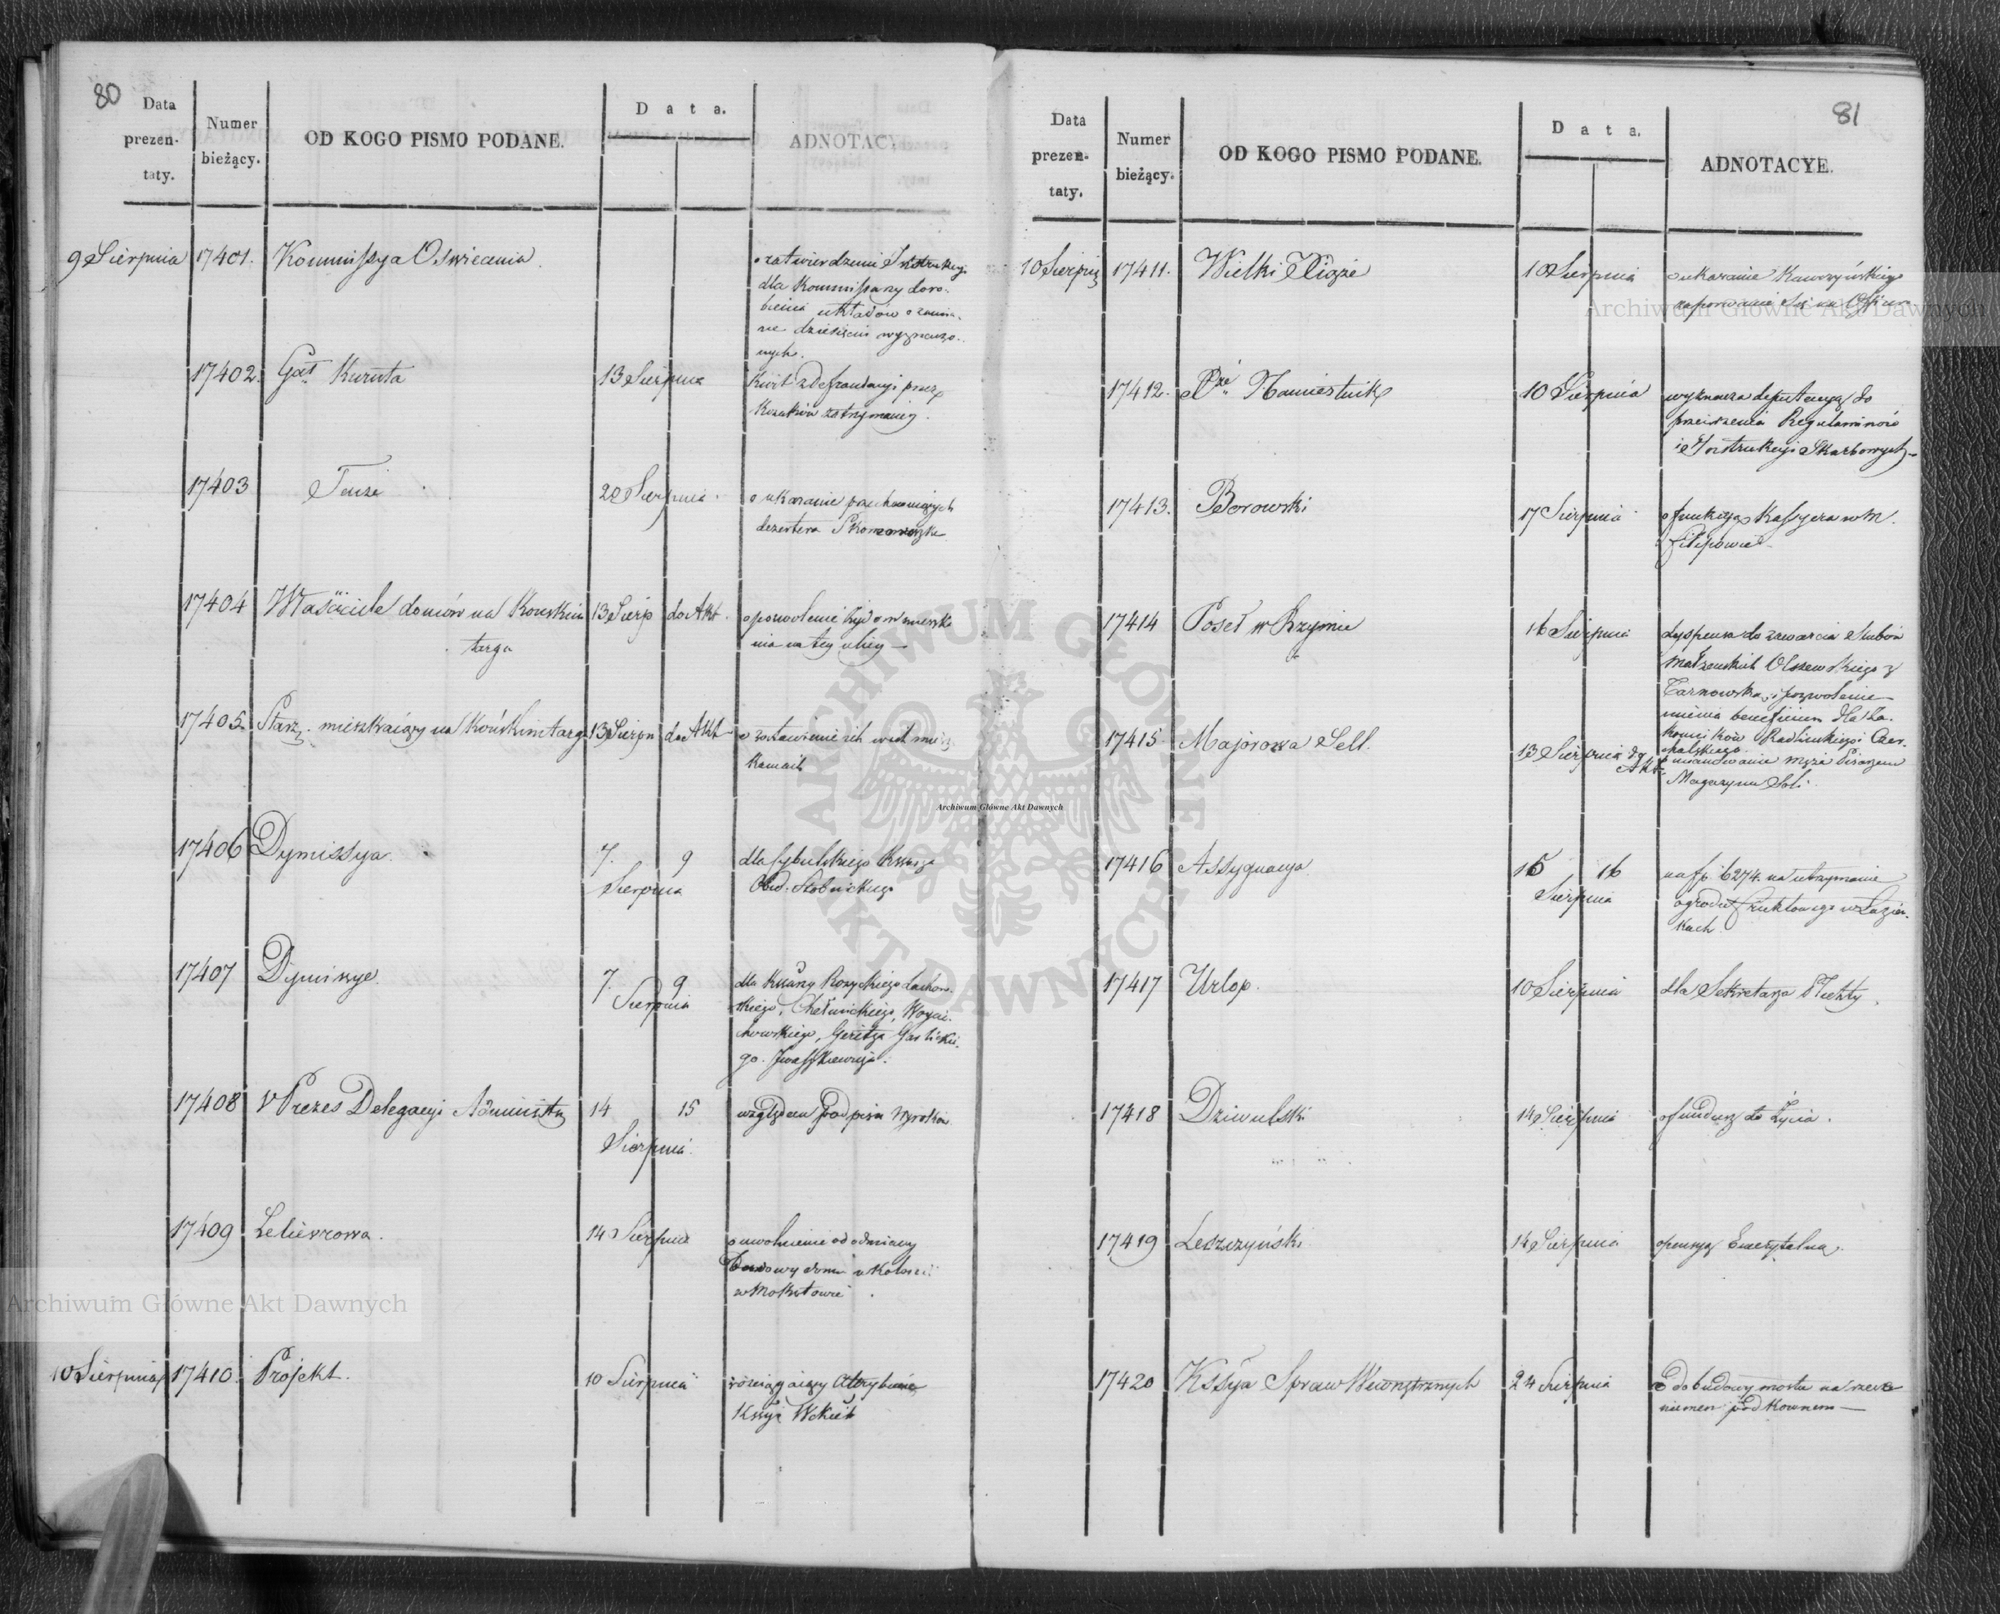 80
Data prezen- taty.
Numer bieżący.
OD KOGO PISMO PODANE.
Data.
ADNOTACY
9 Sierpnia 17401. Kommissya Oswiecenia
o zatwierdzenie Instrukcyi
dla Kommissarzy doro-
bienia układów o zamia-
nę dziesięcin wyznaczo-
nych.
17402. Gał Kuruta 13 Sierpnia
Kwit z defraudacyi przez
Kozaków zatrzymaney.
17403 Tenże 20 Sierpnia
o ukaranie przechowuiących
dezertera
17404 Właściciele domów na Końskim 13 Sierp do Akt
targu
o pozwolenie Żydom mieszka
nia na tey ulicy —
17405. Starz. mieszkaiący na Końskim targ 13 Sierpn do Akt
o zostawienie ich w
17406 Dymissya. 7. 9
Sierpnia
dla Cybulskiego Kssarza
Obw. Stobnickiego
17407 Dymissye. 7. 9
Sierpnia
dla Kssarzy Rozyckiego Lachow-
skiego, Chełmickiego, Woycie-
chowskiego, Geritza
go. Jwaszkiewicza.
17408 V Prezes Delegacyi Administr 14 15
Sierpnia.
względem podpisu Wyroków
17409 Lelievrowa. 14 Sierpnia
o uwolnienie od odmiany
Budowy domu w Kolonii
w Mokotowie.
10 Sierpnia 17410. Projekt. 10 Sierpnia
rozwiązaiący Attrybucie
Kssyi Wokieh
81
Data prezen- taty.
Numer bieżący.
OD KOGO PISMO PODANE.
Data.
ADNOTACYE.
10 Sierpnia 17411. Wielki Xiąże 10 Sierpnia
o ukaranie Kawczyńskiego
17412. Pze Namiestnik 10 Sierpnia
wyznacza deputacyą do
przeirzenia Regulaminów
i Instrukcyi Skarbowych —
17413. Borowski 17 Sierpnia
o funkcyą Kassyera w M.
Filipowie —
17414 Poseł w Rzymie 16 Sierpnia
dyspensa do zawarcia Slubów
małżeńskich Olszewskiego z
Tarnowską, i pozwolenie
mienia beneficium dla Ka-
noników Radlinskiego i Czer-
halskiego
17415 Majorowa Sell. 13 Sierpnia do Akt
o mianowanie męża Pisarzem
Magazynu Soli.
17416 Assygnacya 15 16
Sierpnia
na fp 6274. na utrzymanie
ogrodu fruktowego w Łazien-
kach.
17417 Urlop. 10 Sierpnia
dla Sekretarza Fechty.
17418 Dziwulski 14 Sierpnia
o fundusz do Życia.
17419 Leszczyński 14 Sierpnia
o pensyą Emerytalną.
17420 Kssya Spraw Wewnętrznych 24 Sierpnia
o dobudowy mostu na rzece
niemen pod Kownem —
Archiwum Główne Akt Dawnych
Archiwum Główne Akt Dawnych
Archiwum Główne Akt Dawnych
ARCHIWUM GŁÓWNE AKT DAWNYCH